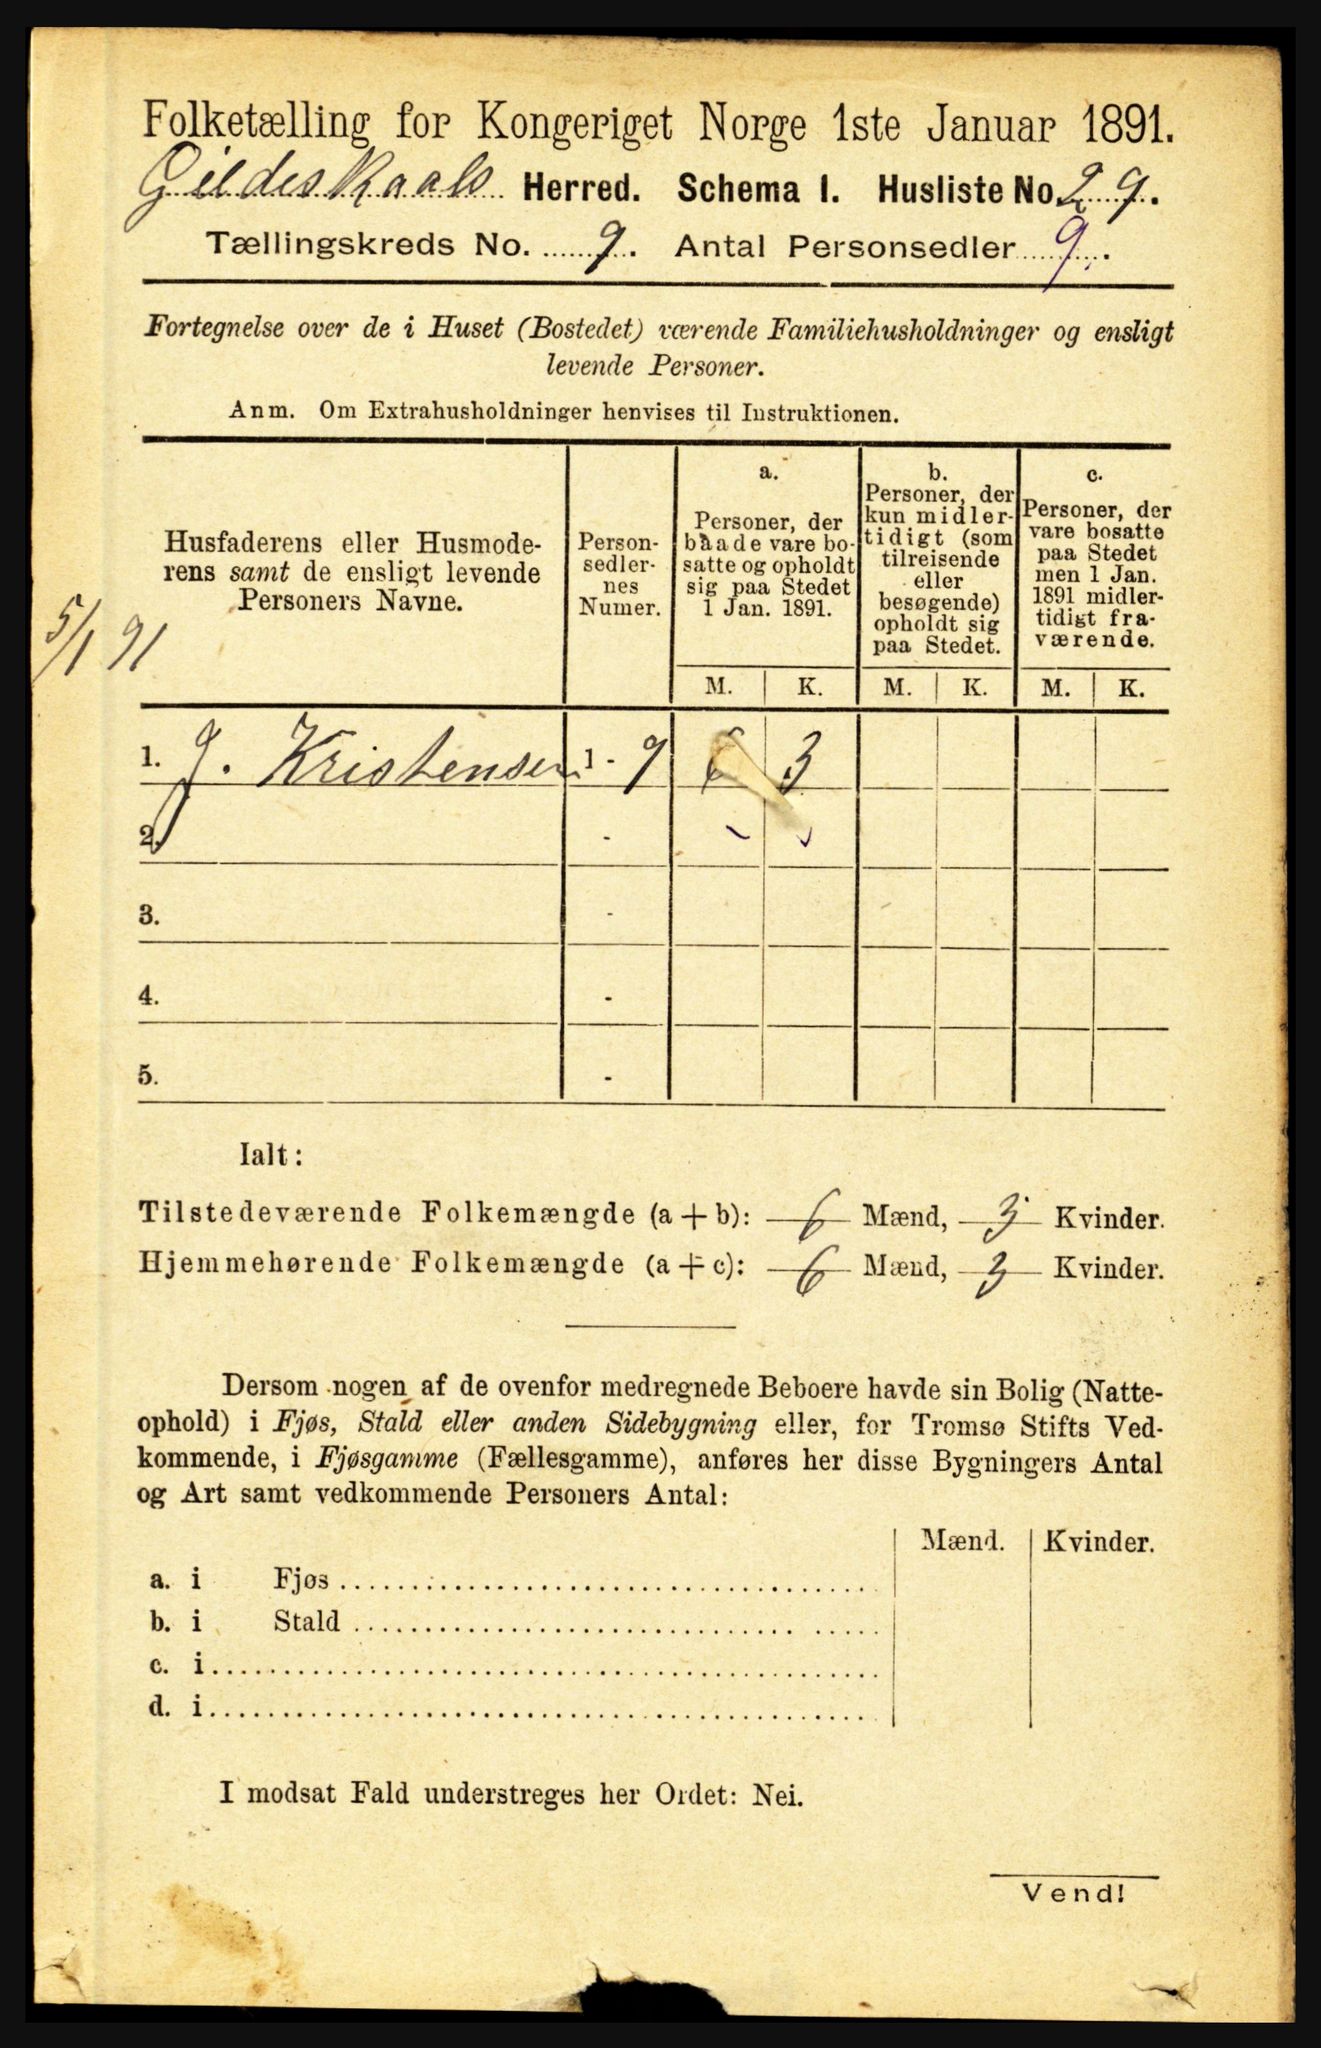 Folketælling for Kongeriget Norge 1ste Januar 1891.
Gildeskaals Herred. Schema I. Husliste No. 29.
Tællingskreds No. 9. Antal Personsedler 9.
Fortegnelse over de i Huset (Bostedet) værende Familiehusholdninger og ensligt
levende Personer.
Anm. Om Extrahusholdninger henvises til Instruktionen.
Husfaderens eller Husmode-
rens samt de ensligt levende
Personers Navne.
Person-
sedler-
nes
Numer.
a.
Personer, der
baade vare bo-
satte og opholdt
sig paa Stedet
1 Jan. 1891.
b.
Personer, der
kun midler-
tidigt (som
tilreisende
eller
besøgende)
opholdt sig
paa Stedet.
c.
Personer, der
vare bosatte
paa Stedet
men 1 Jan.
1891 midler-
tidigt fra-
værende.
5/1 91
M. K. M. K. M. K.
1. J. Kristensen 1 - 9 6 3
2. -
3. -
4. -
5. -
Ialt:
Tilstedeværende Folkemængde (a + b): 6 Mænd, 3 Kvinder.
Hjemmehørende Folkemængde (a + c): 6 Mænd, 3 Kvinder.
Dersom nogen af de ovenfor medregnede Beboere havde sin Bolig (Natte-
ophold) i Fjøs, Stald eller anden Sidebygning eller, for Tromsø Stifts Ved-
kommende, i Fjøsgamme (Fællesgamme), anføres her disse Bygningers Antal
og Art samt vedkommende Personers Antal:
Mænd. Kvinder.
a. i Fjøs
b. i Stald
c. i
d. i
I modsat Fald understreges her Ordet: Nei.
Vend!